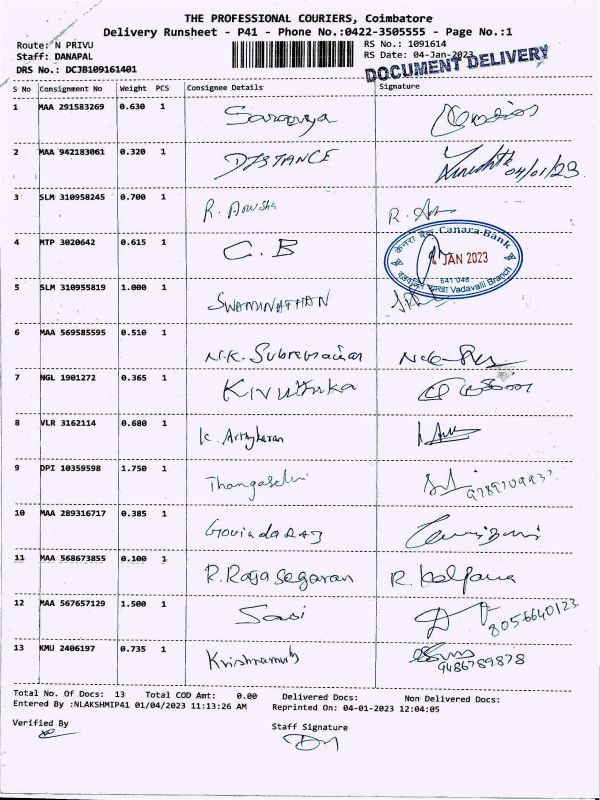 THE PROFESSIONAL COURIERS, Coimbatore
Delivery Runsheet - P41 - Phone No.:0422-3505555 - Page No.:1
Route: N PRIVU
RS No.: 1091614
Staff: DANAPAL
RS Date: 04-Jan-2023
DRS No.: DCJB109161401
DOCUMENT DELIVERY
S No Consignment No Weight PCS Consignee Details Signature
1 MAA 291583269 0.630 1 Saranya
2 MAA 942183061 0.320 1 DISTANCE 04/01/23
3 SLM 310958245 0.700 1 R.
4 MTP 3020642 0.615 1 C.B
केनरा बैंक Canara Bank
4 JAN 2023
641 046
Vadavalli Branch
5 SLM 310955819 1.000 1 SWAMINATHAN
6 MAA 569585595 0.510 1 N.K. Subramanian
7 NGL 1901272 0.365 1
8 VLR 3162114 0.680 1 K.
9 DPI 10359598 1.750 1 Thangaselvi
10 MAA 289316717 0.385 1 GovindaRaj
11 MAA 568673855 0.100 1 R.Rajasegaran R. kalpana
12 MAA 567657129 1.500 1 Sasi 8056640123
13 KMU 2406197 0.735 1 Krishnamurty 9486789878
Total No. Of Docs: 13 Total COD Amt: 0.00 Delivered Docs: Non Delivered Docs:
Entered By :NLAKSHMIP41 01/04/2023 11:13:26 AM Reprinted On: 04-01-2023 12:04:05
Verified By
Staff Signature